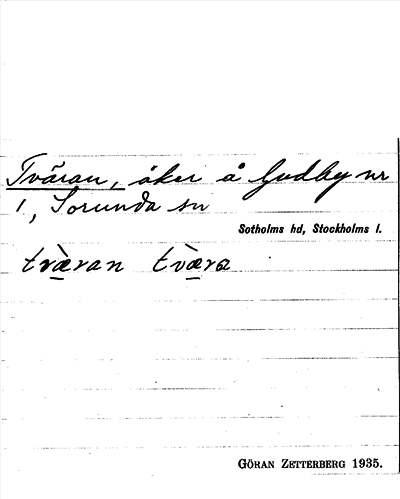 Tväran, åker å Gudby nr
1, Sorunda sn
Sotholms hd, Stockholms l.
tvæ̀ran tvæ̀ra
GÖRAN ZETTERBERG 1935.